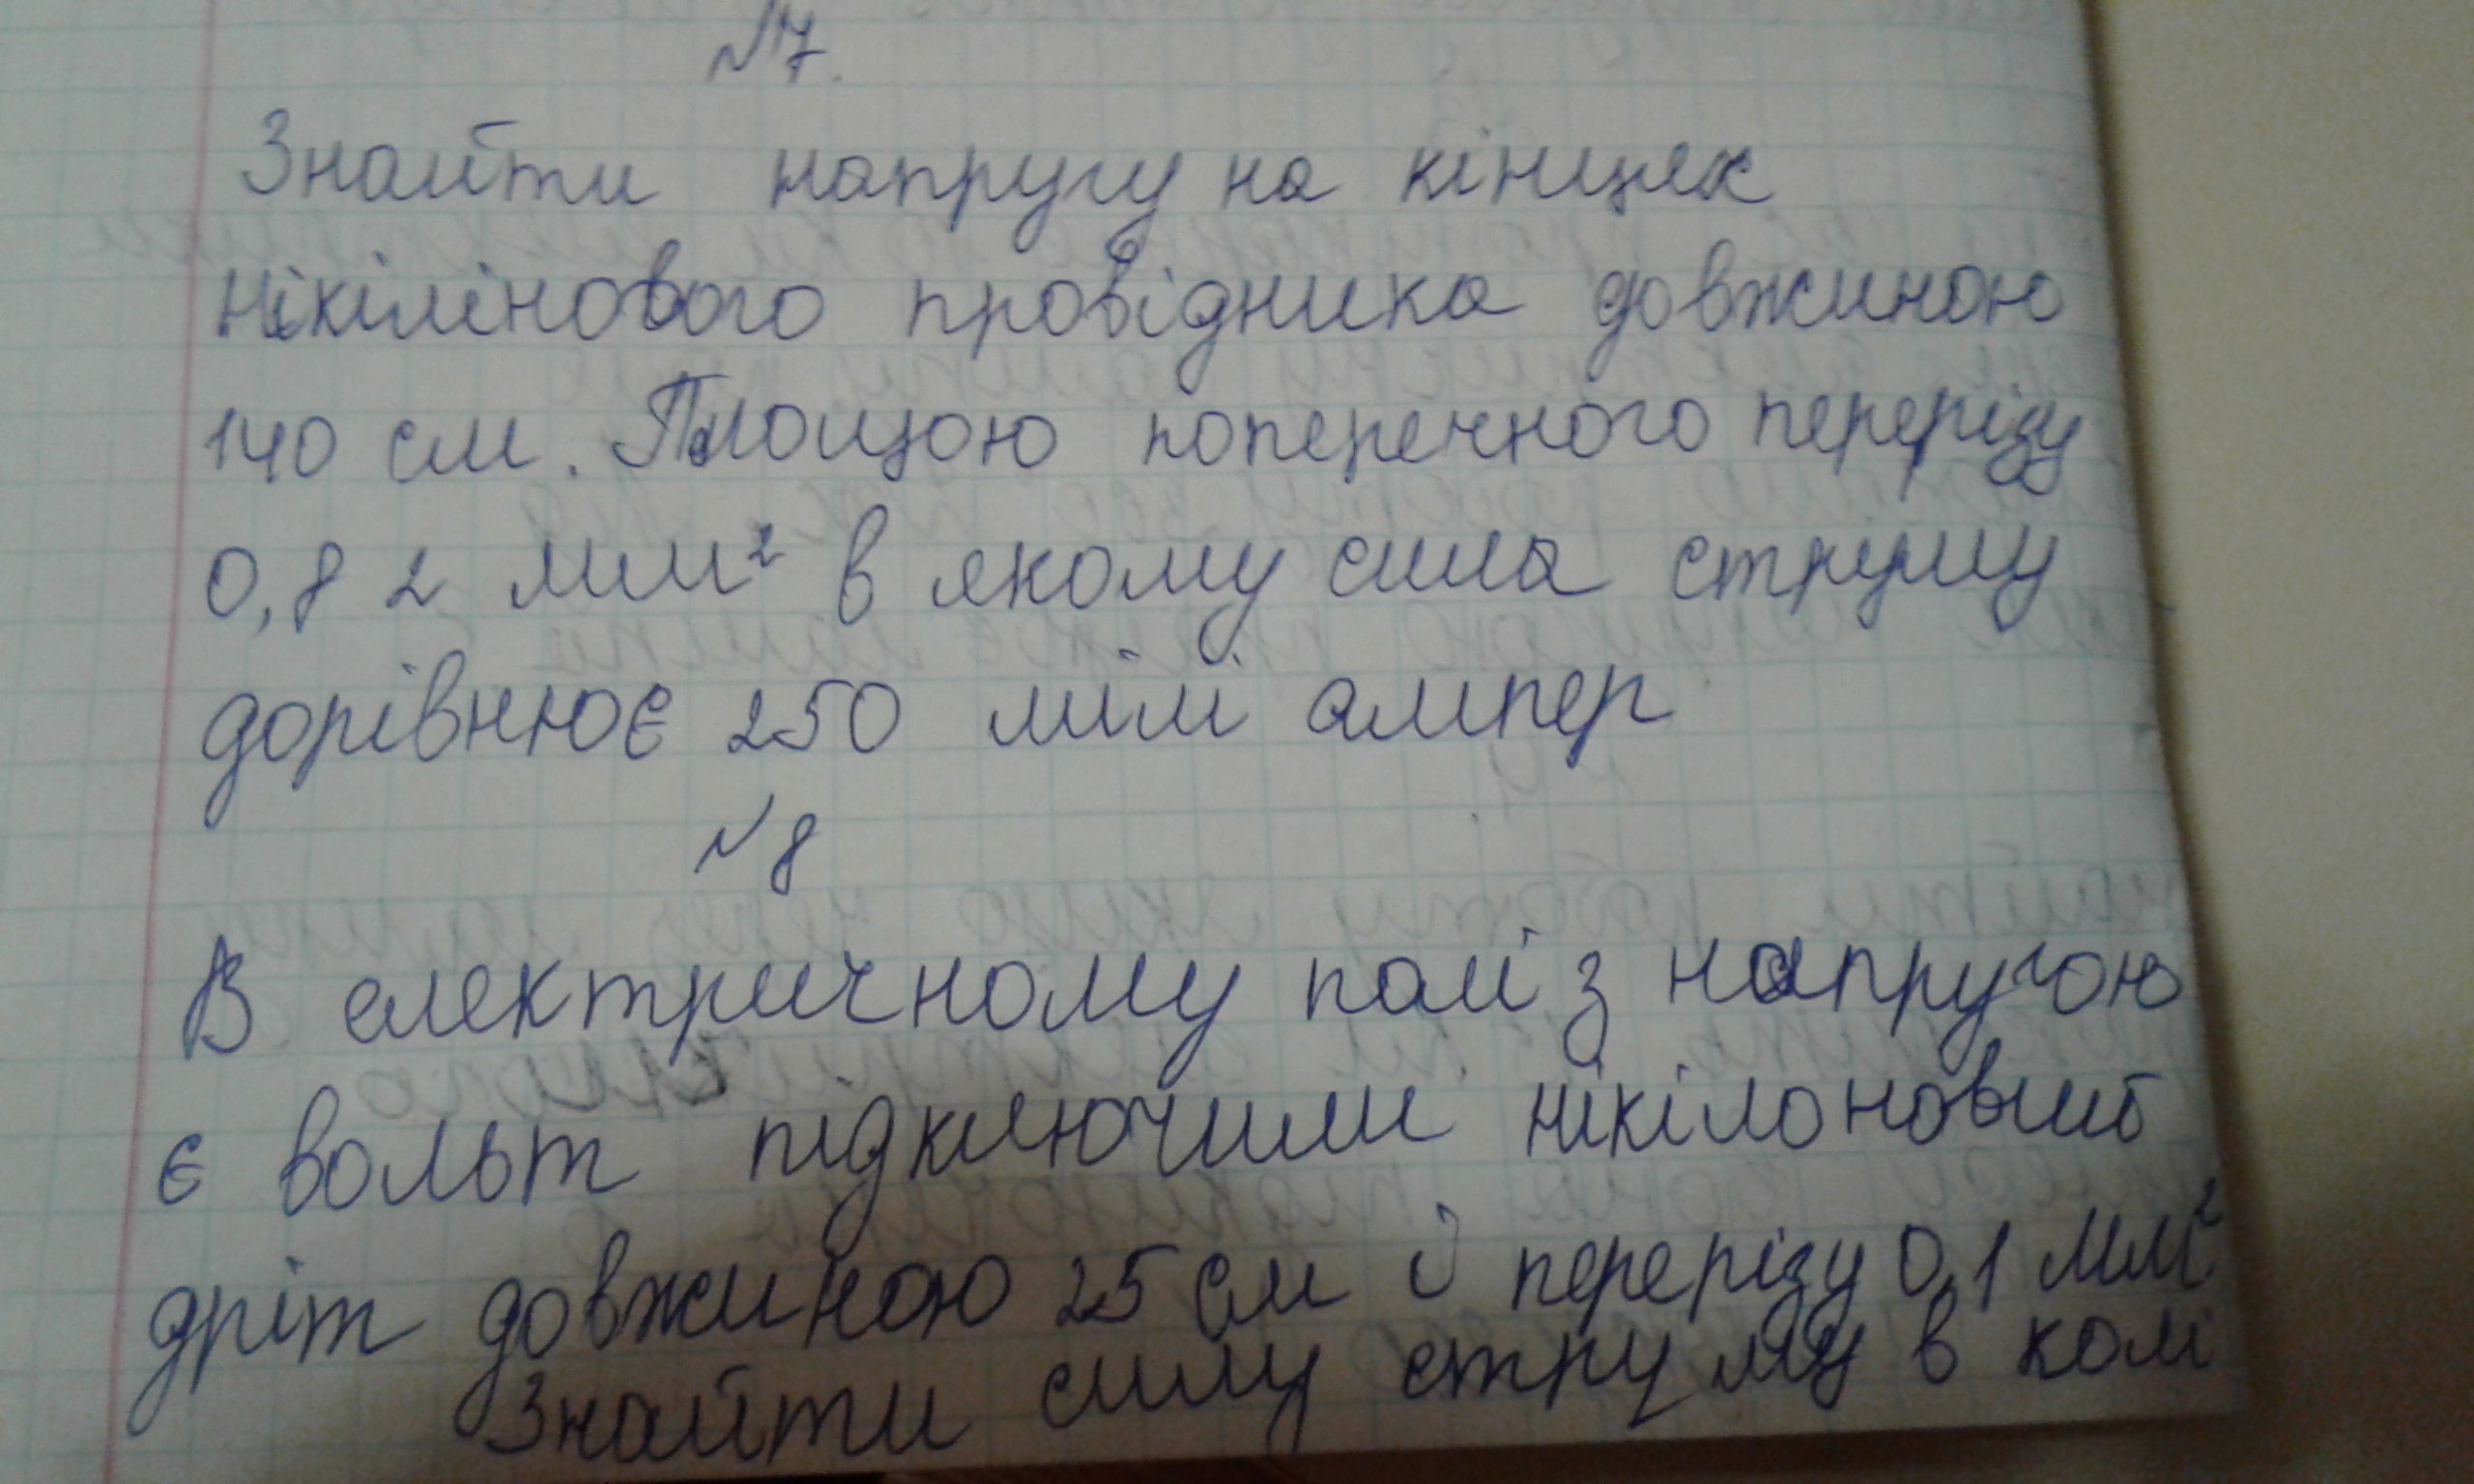 №7.
Знайти напругу на кінцях
нікілінового провідника довжиною
140 см. Площою поперечного перерізу
0,8 2 мм² в якому сила струму
дорівнює 250 мілі ампер
№8
В електричному полі з напругою
є вольт підключили нікілоновий
дріт довжиною 25 см й перерізу 0,1 мм²
Знайти силу струму в колі